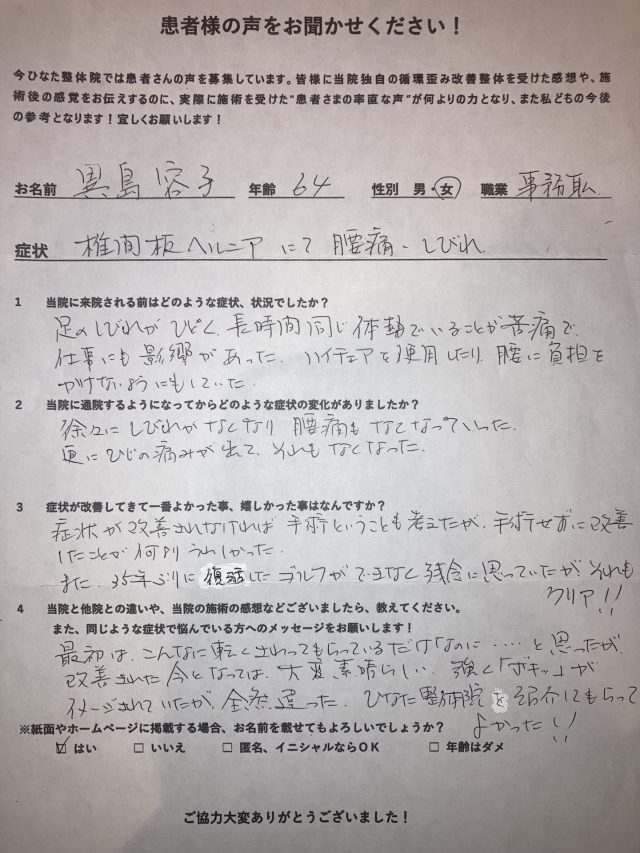 患者様の声をお聞かせください！
今ひなた整体院では患者さんの声を募集しています。皆様に当院独自の循環歪み改善整体を受けた感想や、施
術後の感覚をお伝えするのに、実際に施術を受けた“患者さまの率直な声”が何よりの力となり、また私どもの今後
の参考となります！宜しくお願いします！
お名前 異島容子 年齢 64 性別 男・女 職業 事務職
症状 椎間板ヘルニアにて腰痛・しびれ
1 当院に来院される前はどのような症状、状況でしたか？
足のしびれがひどく、長時間同じ体勢でいることが苦痛で、
仕事にも影響があった。ハイチェアを使用したり、腰に負担を
かけないようにもしていた。
2 当院に通院するようになってからどのような症状の変化がありましたか？
徐々にしびれがなくなり、腰痛もなくなっていった。
更にひじの痛みが出て、それもなくなった。
3 症状が改善してきて一番よかった事、嬉しかった事はなんですか？
症状が改善されなければ手術ということも考えたが、手術せずに改善
したことが何よりうれしかった。
また、35年ぶりに復活したゴルフができなく残念に思っていたが、それも
クリア！！
4 当院と他院との違いや、当院の施術の感想などございましたら、教えてください。
また、同じような症状で悩んでいる方へのメッセージをお願いします！
最初は、こんなに軽くさわってもらっているだけなのに‥‥と思ったが、
改善された今となっては、大変素晴らしい。強く「ボキッ」が
イメージされていたが、全然違った。ひなた整体院を紹介してもらって
よかった！！
※紙面やホームページに掲載する場合、お名前を載せてもよろしいでしょうか？
☑ はい □ いいえ □ 匿名、イニシャルならOK □ 年齢はダメ
ご協力大変ありがとうございました！